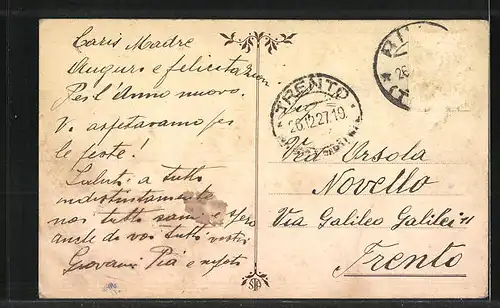 Caris Madre
Auguri e felicitazion
Per l'Anno nuovo.
Vi aspettavamo per
le feste!
Saluti a tutti
indistintamente
noi tutti sani e spero
anche di voi tutti vostri
Giovanni Pia e nipoti
TRENTO
26.12.27.19
26
Ved Orsola
Novello
Via Galileo Galilei 11
Trento